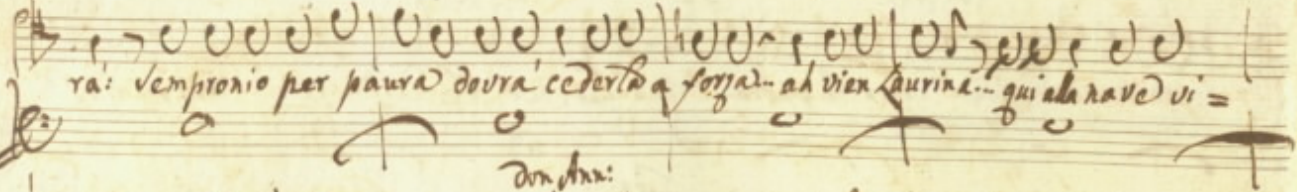 rà: Sempronio per paura dovrà cederla a forza... ah vien Laurina... qui alla nave vi=
don Ann: